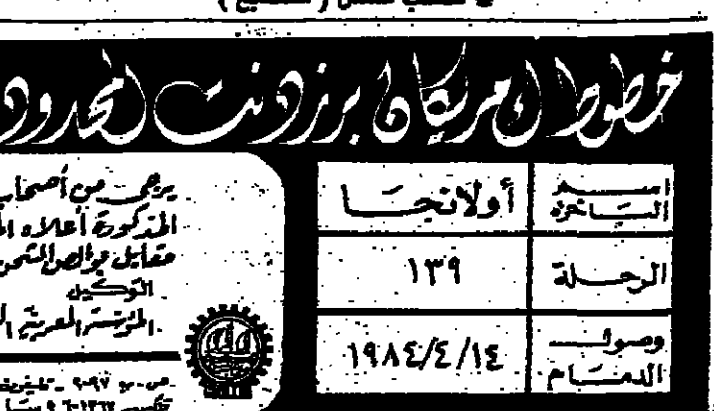 خطوط امريكان برزدنت المحدود
اسم الساخرة أولانجا
الرحلة ١٣٩
وصول الدمام ١٩٨٤/٤/١٤
يرجى من أصحاب
المذكورة أعلاه
مقابل بوالص الشحن
الوكيل
المؤسسة